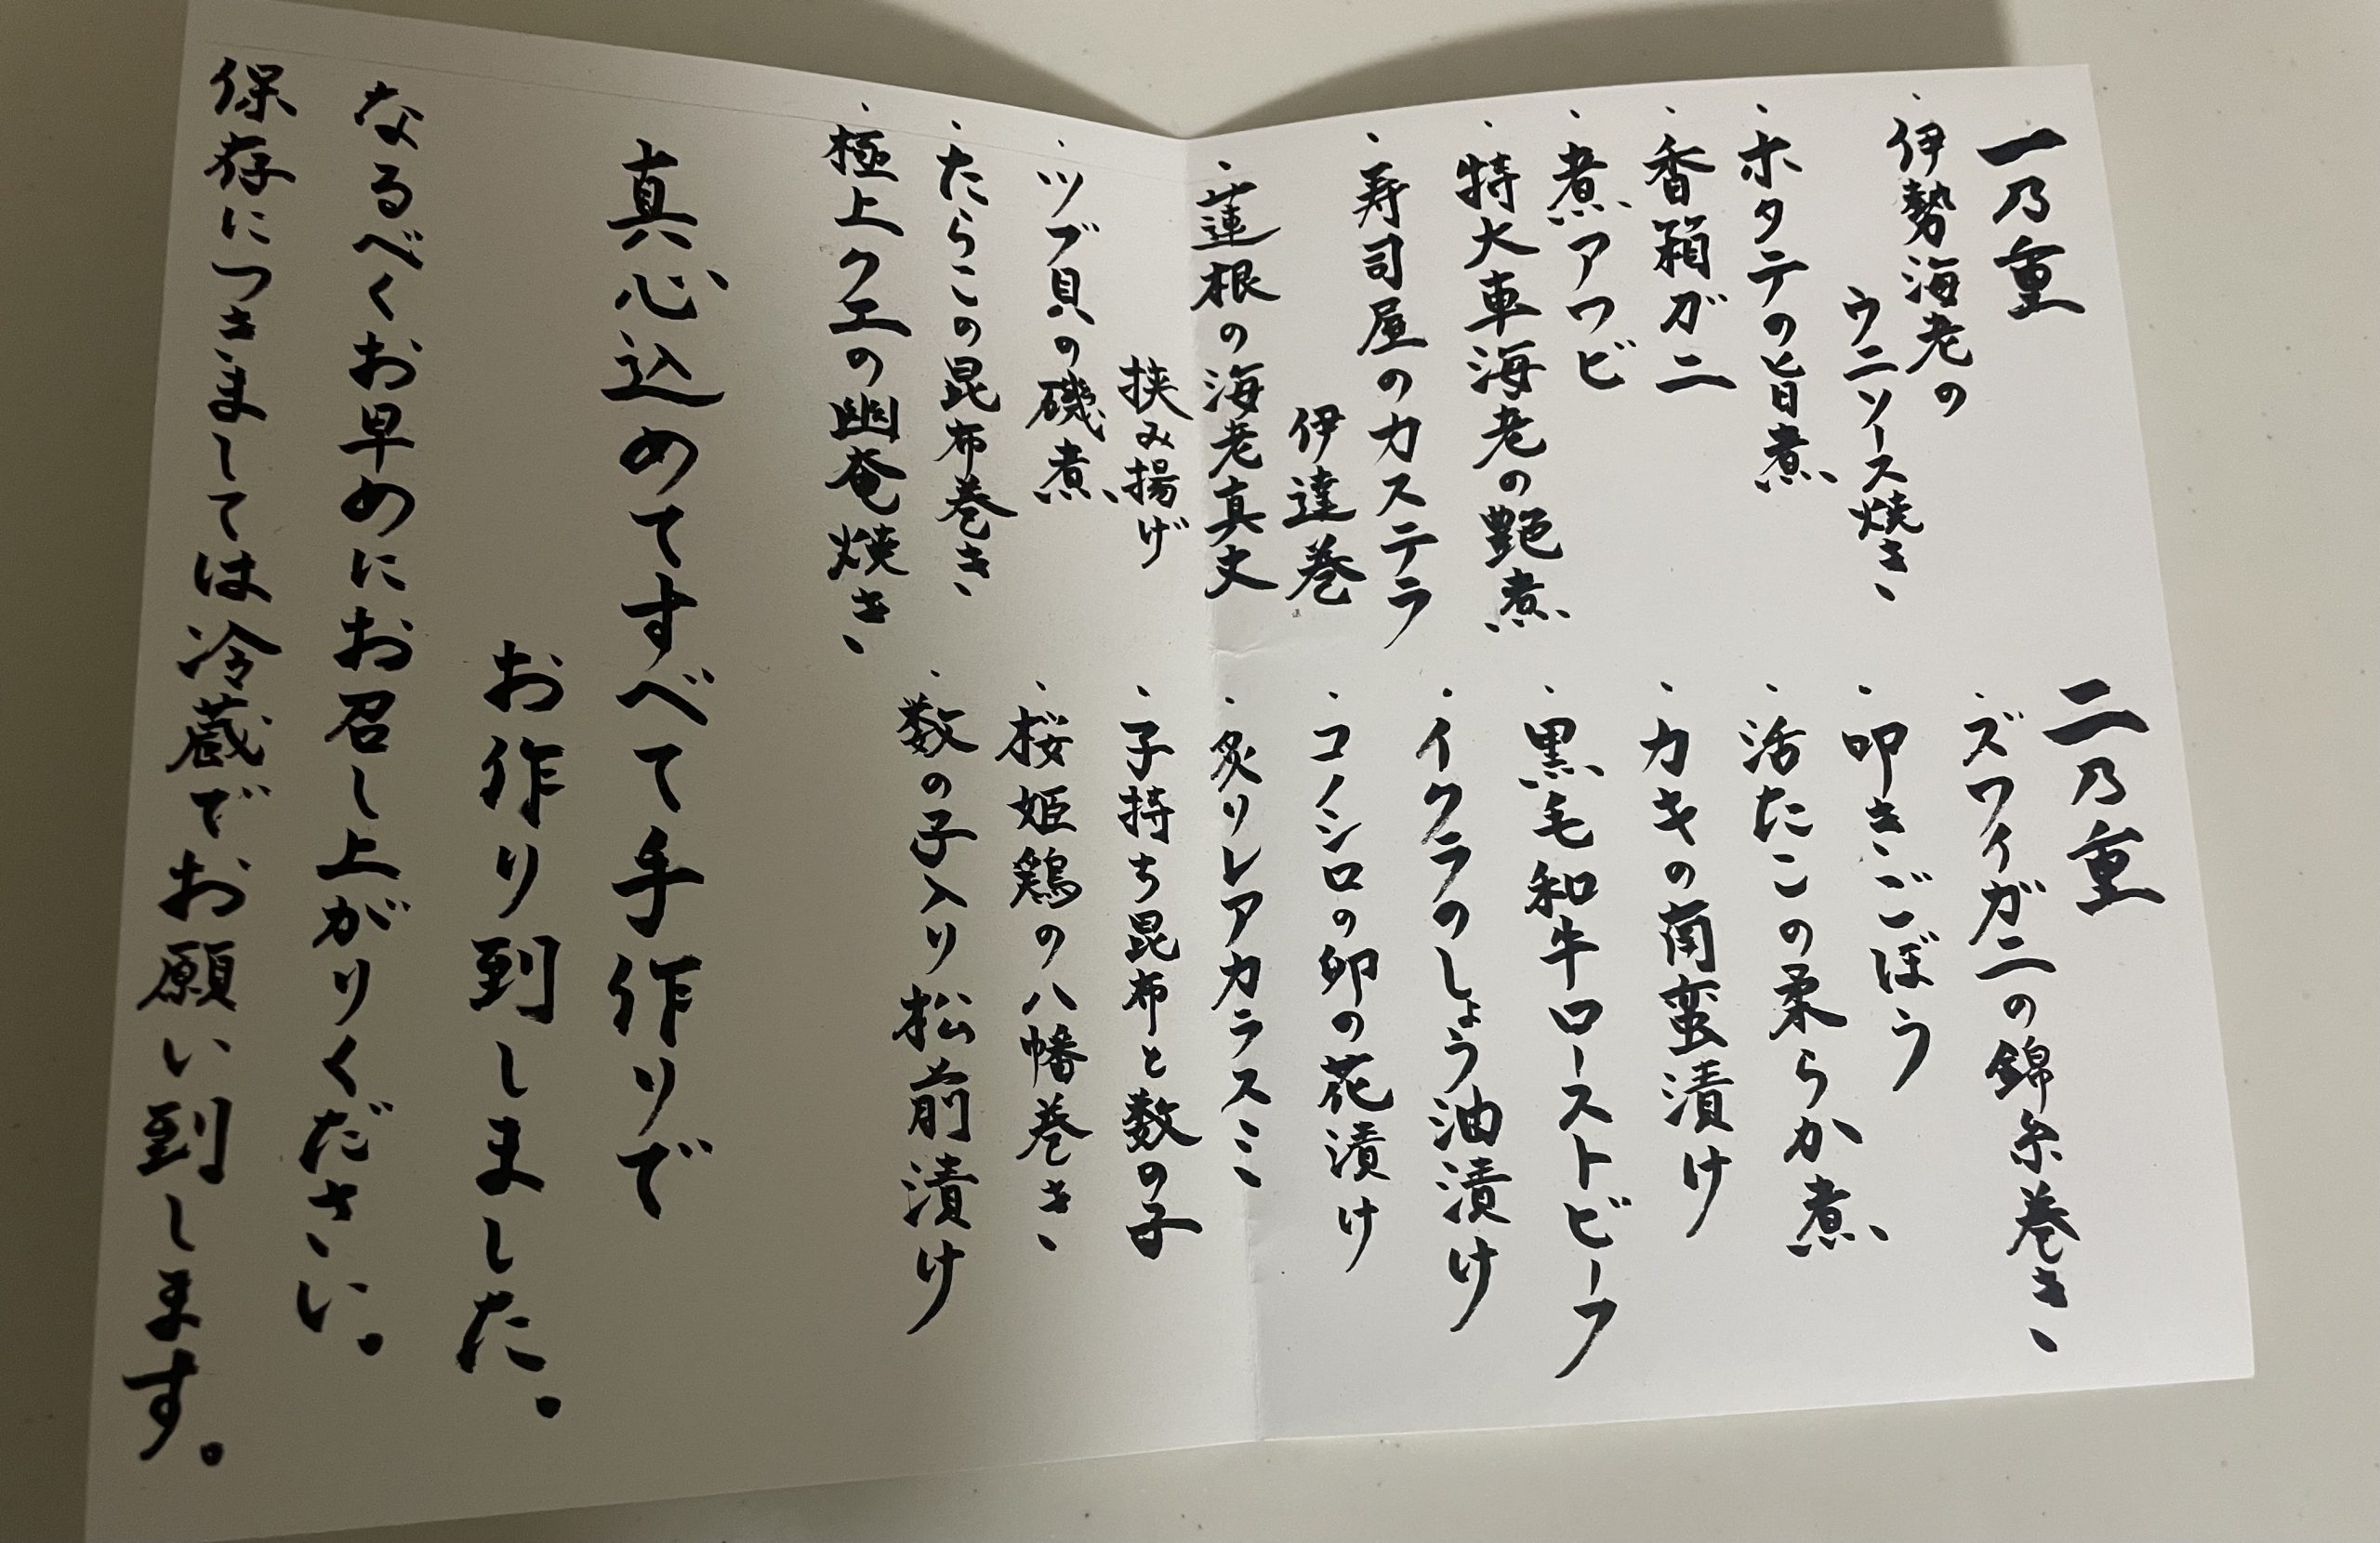 一乃重
・伊勢海老の
ウニソース焼き
・ホタテの旨煮
・香箱ガニ
・煮アワビ
・特大車海老の艶煮
・寿司屋のカステラ
伊達巻
・蓮根の海老真丈
挟み揚げ
・ツブ貝の磯煮
・たらこの昆布巻き
・極上クエの幽奄焼き
二乃重
・ズワイガニの錦糸巻き
・叩きごぼう
・活たこの柔らか煮
・カキの南蛮漬け
・黒毛和牛ローストビーフ
・イクラのしょう油漬け
・コノシロの卵の花漬け
・炙りレアカラスミ
・子持ち昆布と数の子
・桜姫鶏の八幡巻き
・数の子入り松前漬け
真心込めてすべて手作りで
お作り到しました。
なるべくお早めにお召し上がりください。
保存につきましては冷蔵でお願い到します。